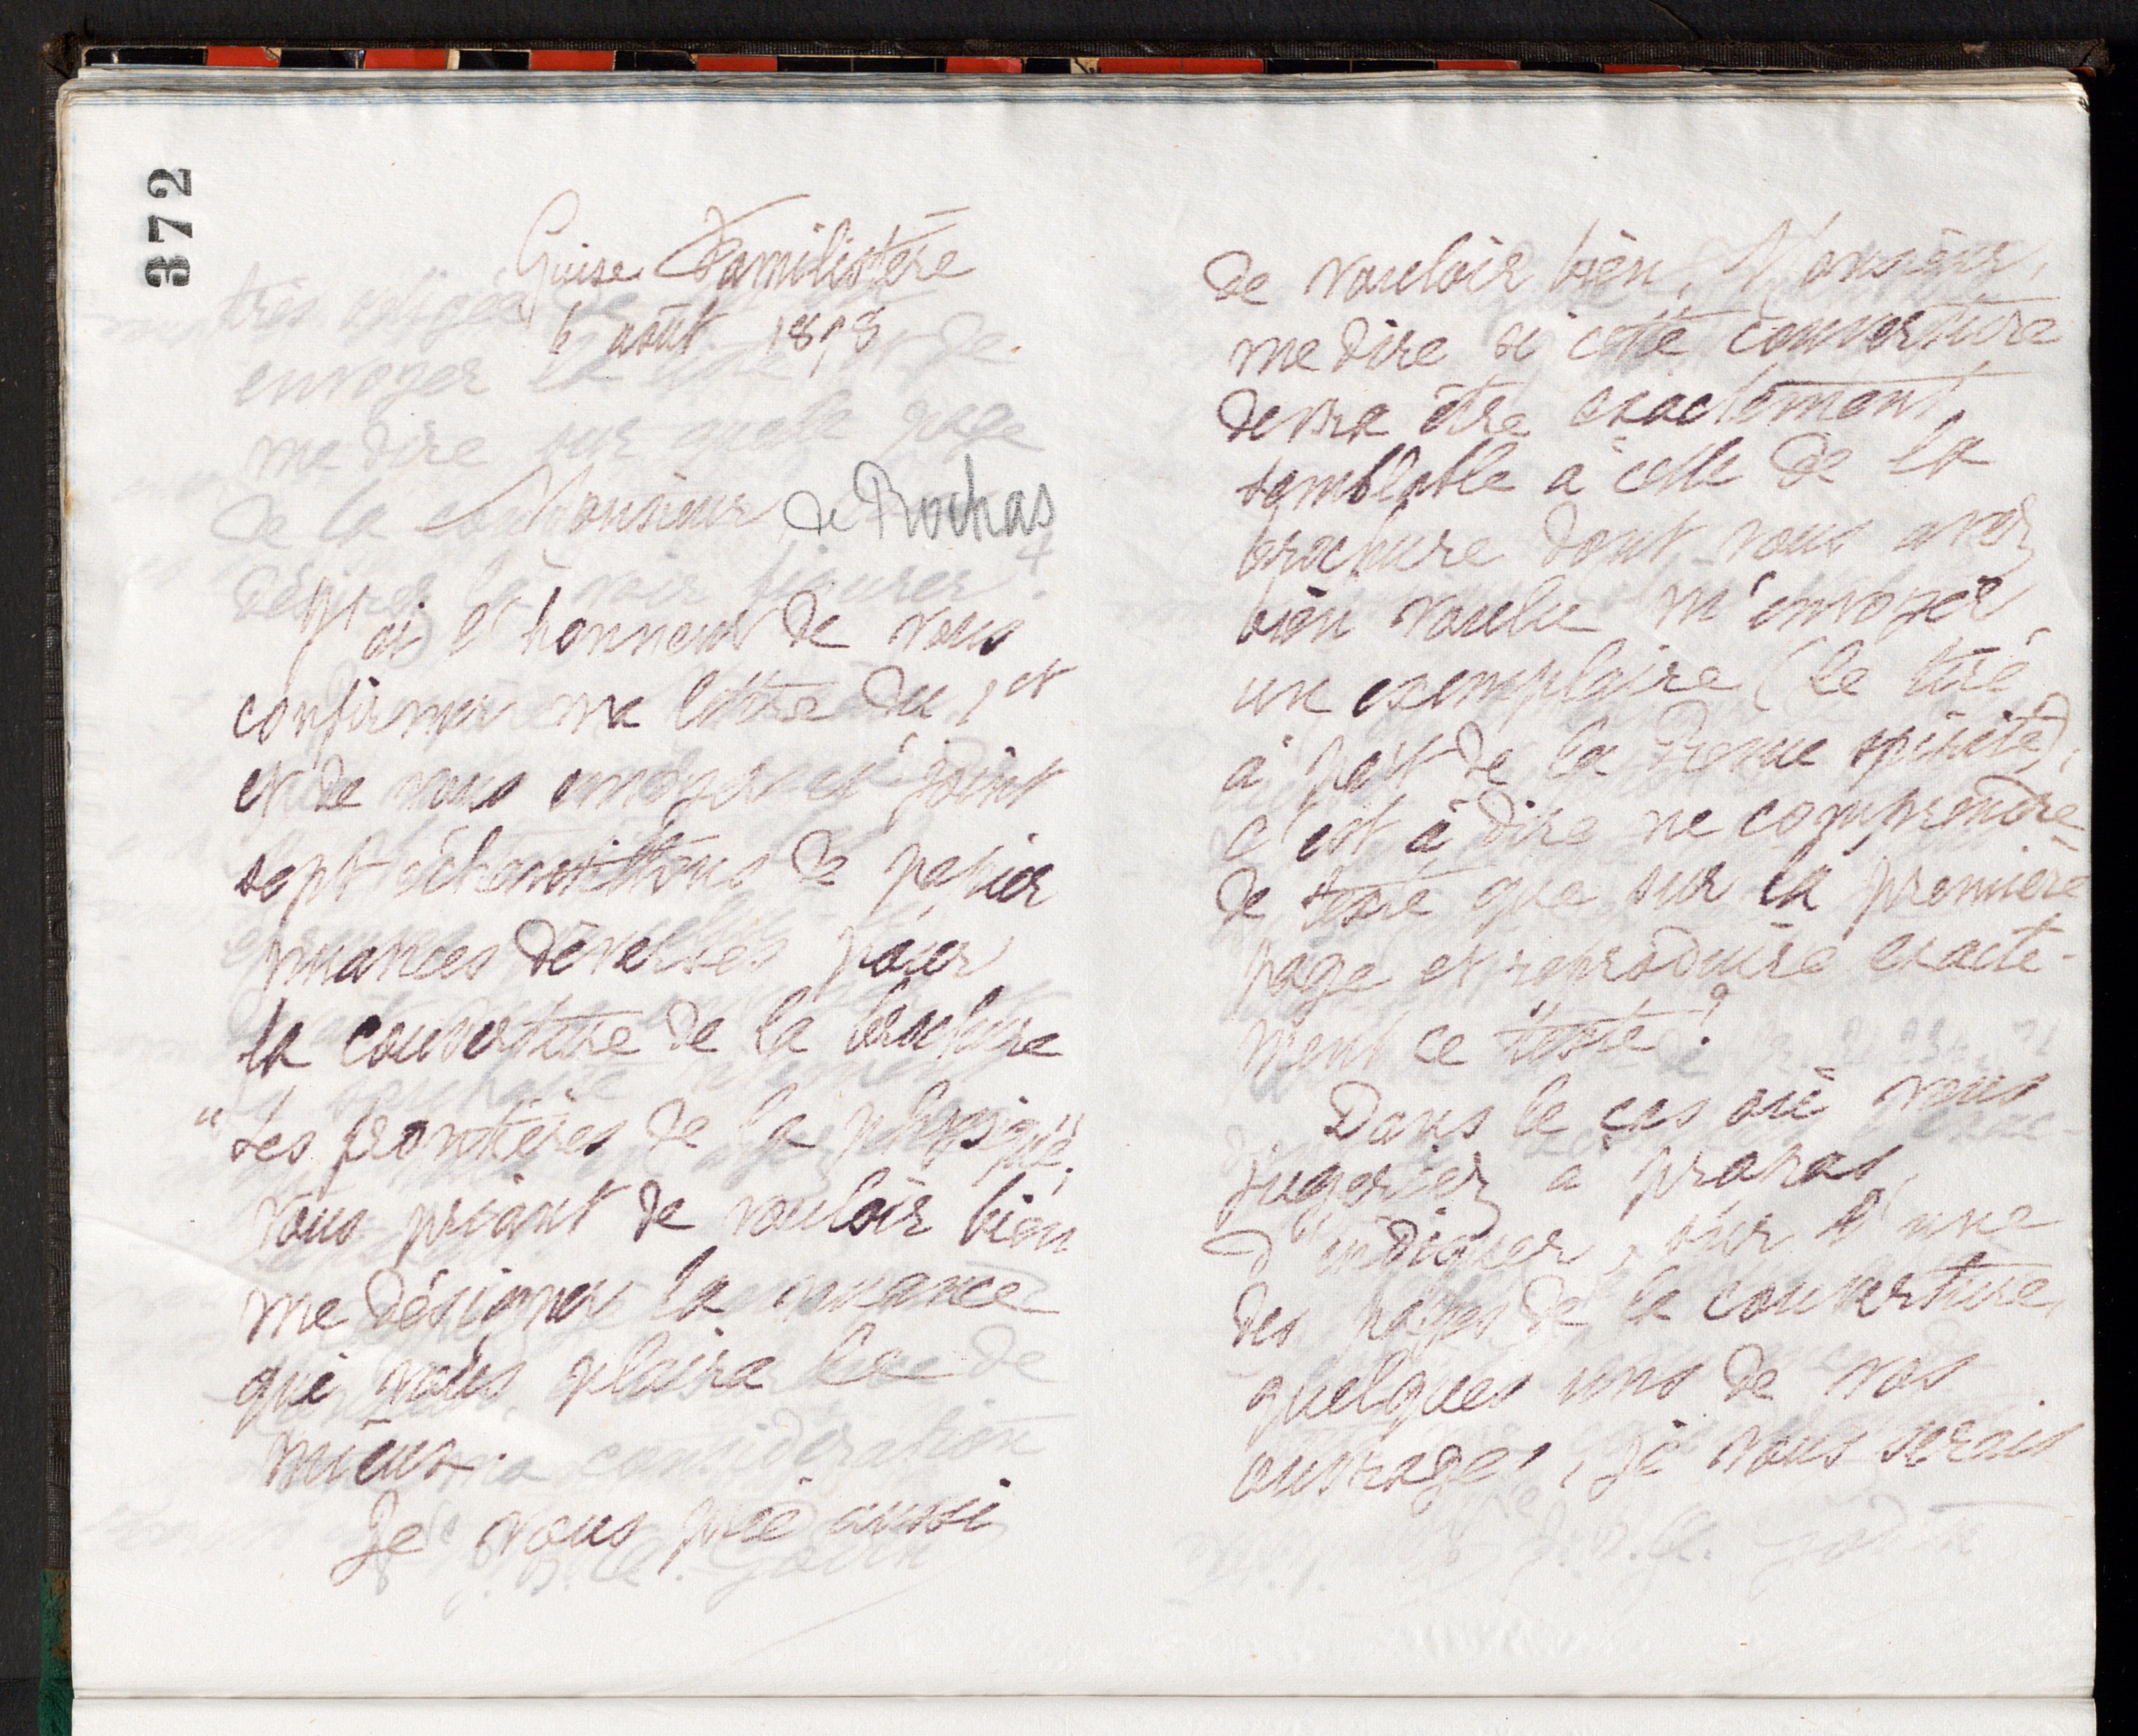 372
Guise Familistère
6 août 1898
Monsieur de Rochas
J'ai l'honneur de vous
confirmer ma lettre du 1er
et de vous envoyer ci-joint
sept échantillons de papier
nuances diverses pour
la couverture de la brochure
"Les frontières de la physique",
vous priant de vouloir bien
me désigner la nuance
qui vous plaira le
mieux.
Je vous prie aussi
de vouloir bien, Monsieur,
me dire si cette couverture
devra être exactement
semblable à celle de la
brochure dont vous avez
bien voulu m'envoyer
un exemplaire (le tiré
à part de la Revue spirite),
c'est à dire ne comprendre
de texte que sur la première
page et reproduire exacte-
ment ce texte ?
Dans le cas où vous
jugeriez à propos
d'indiquer, sur l'une
des pages de la couverture,
quelques uns de vos
ouvrages, je vous serais